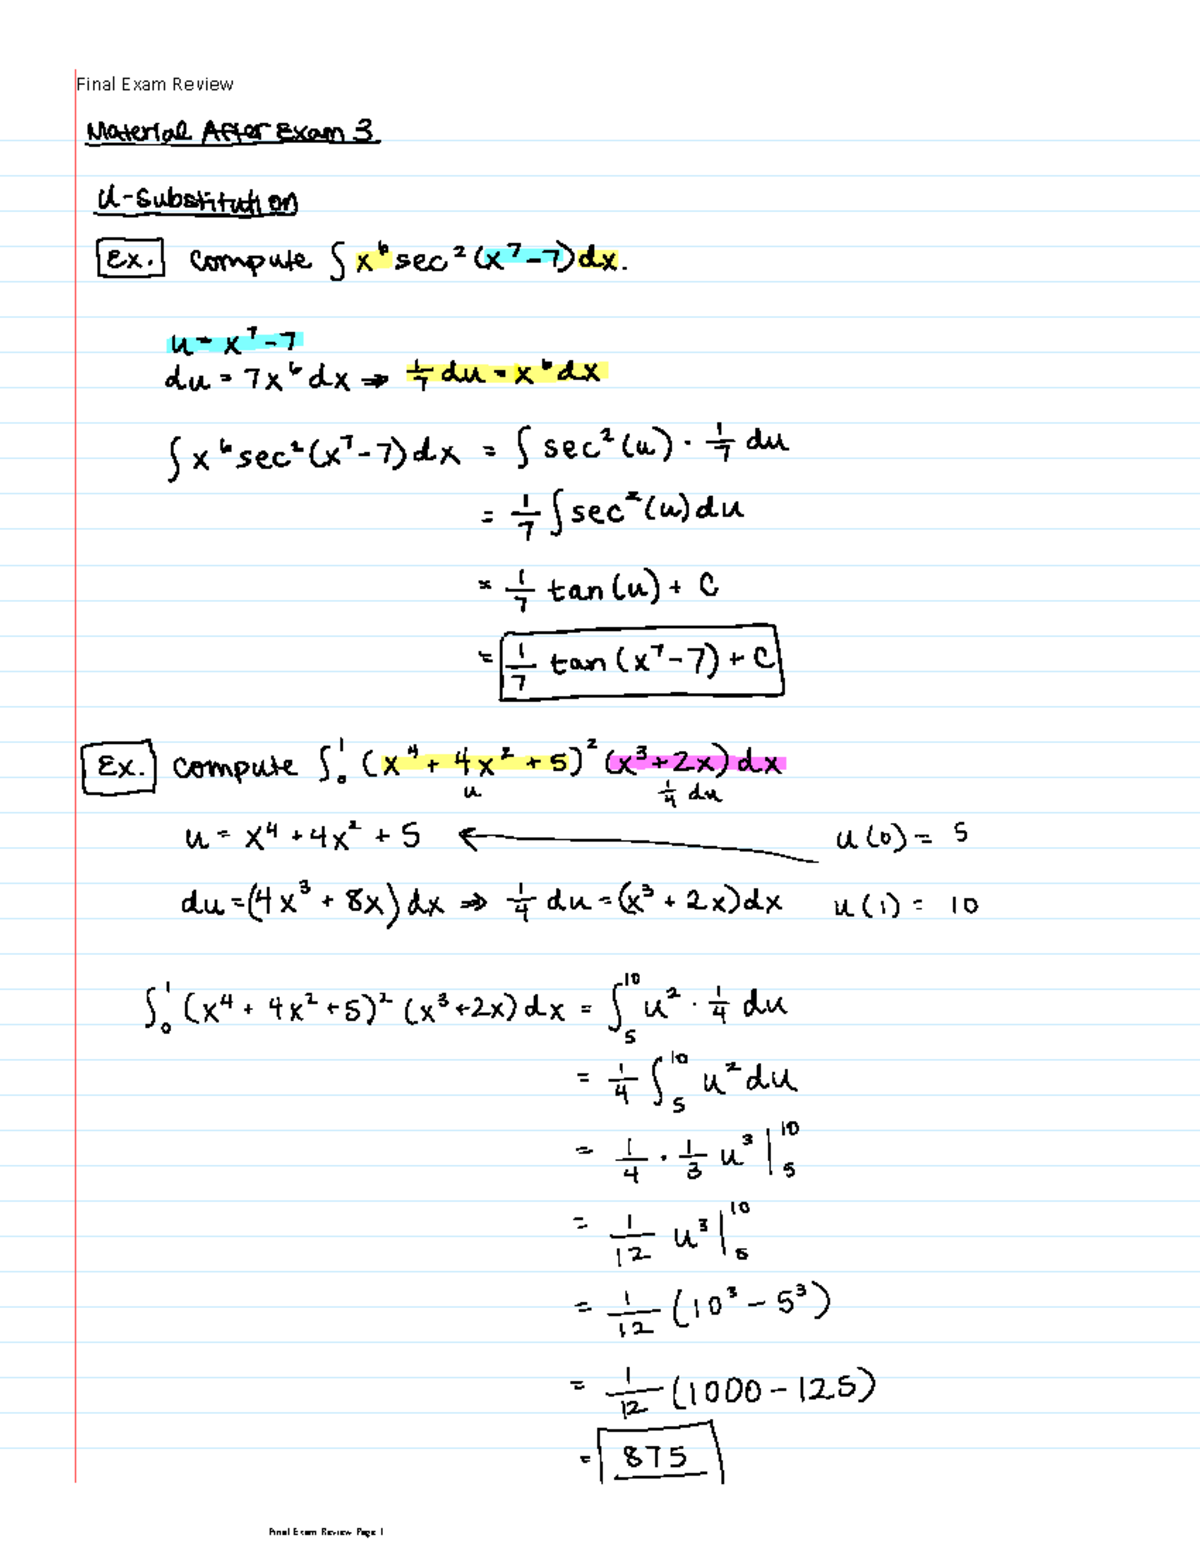 Final Exam Review
Material After Exam 3
U-Substitution
Ex. Compute ∫ x⁶ sec² (x⁷-7) dx.
u = x⁷-7
du = 7x⁶ dx ⇒ 1/7 du = x⁶ dx
∫ x⁶ sec² (x⁷-7) dx = ∫ sec² (u) · 1/7 du
= 1/7 ∫ sec² (u) du
= 1/7 tan (u) + C
= 1/7 tan (x⁷-7) + C
Ex. Compute ∫₀¹ (x⁴ + 4x² + 5)² (x³+2x) dx
u 1/4 du
u = x⁴ + 4x² + 5 ← u(0) = 5
du = (4x³ + 8x) dx ⇒ 1/4 du = (x³ + 2x) dx u(1) = 10
∫₀¹ (x⁴ + 4x² + 5)² (x³+2x) dx = ∫₅¹⁰ u² · 1/4 du
= 1/4 ∫₅¹⁰ u² du
= 1/4 · 1/3 u³ |₅¹⁰
= 1/12 u³ |₅¹⁰
= 1/12 (10³ - 5³)
= 1/12 (1000 - 125)
= 875
Final Exam Review Page 1